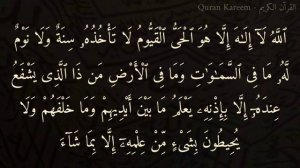 Quran Kareem - القرآن الكريم
ٱللَّهُ لَآ إِلَـٰهَ إِلَّا هُوَ ٱلْحَىُّ ٱلْقَيُّومُ لَا تَأْخُذُهُۥ سِنَةٌ وَلَا نَوْمٌ
لَّهُۥ مَا فِى ٱلسَّمَـٰوَٰتِ وَمَا فِى ٱلْأَرْضِ مَن ذَا ٱلَّذِى يَشْفَعُ
عِندَهُۥٓ إِلَّا بِإِذْنِهِۦ يَعْلَمُ مَا بَيْنَ أَيْدِيهِمْ وَمَا خَلْفَهُمْ وَلَا
يُحِيطُونَ بِشَىْءٍ مِّنْ عِلْمِهِۦٓ إِلَّا بِمَا شَآءَ